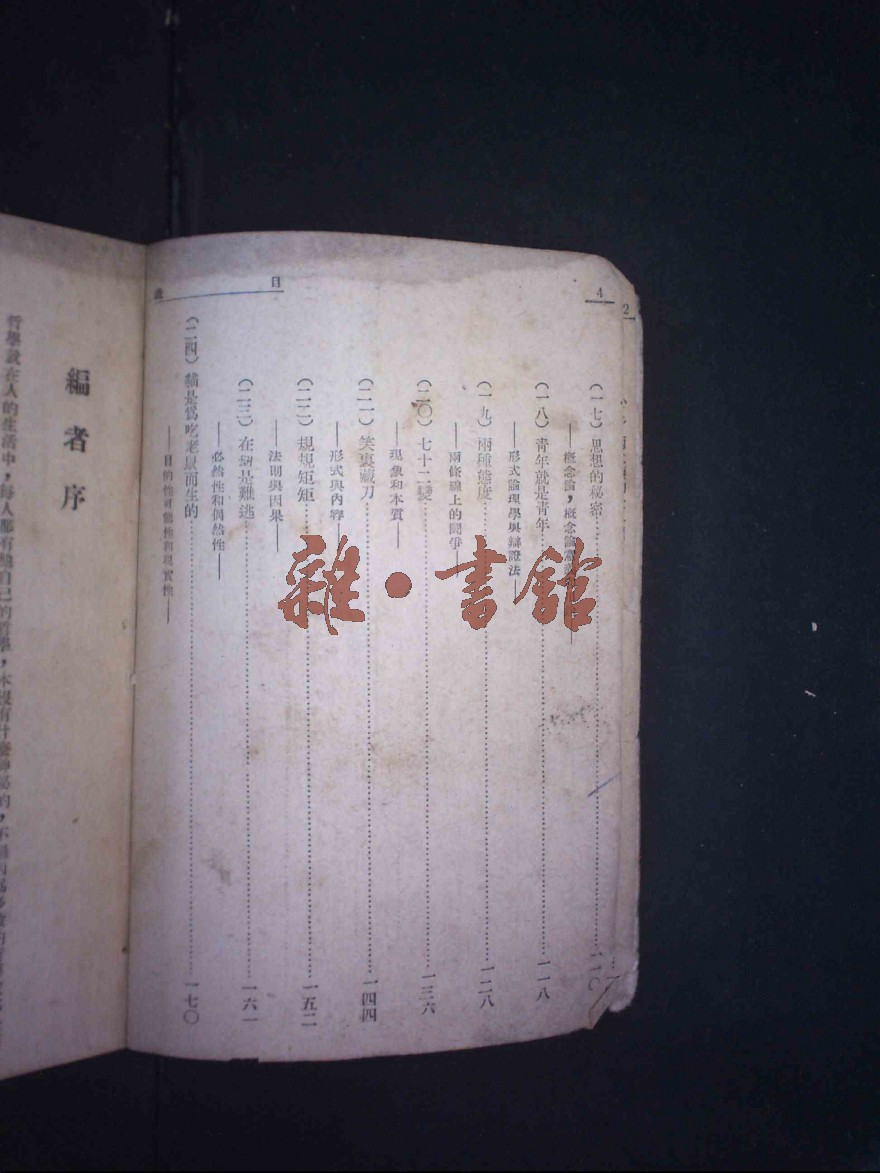 4
2
目
(一七)思想的秘密……一一〇
——概念論,概念論
(一八)青年就是青年……一一八
——形式論理學與辯證法——
(一九)兩種態度……一二八
——兩條線上的鬪爭——
(二〇)七十二變……一三六
——現象和本質——
(二一)笑裏藏刀……一四四
——形式與內容——
(二二)規規矩矩……一五二
——法則與因果——
(二三)在劫是難逃……一六一
——必然性和偶然性——
(二四)貓是爲吃老鼠而生的……一七〇
——目的性可能性和現實性——
雜·書館
編者序
哲學就在人的生活中,每人都有他自己的哲學,本沒有什麼神秘的,不